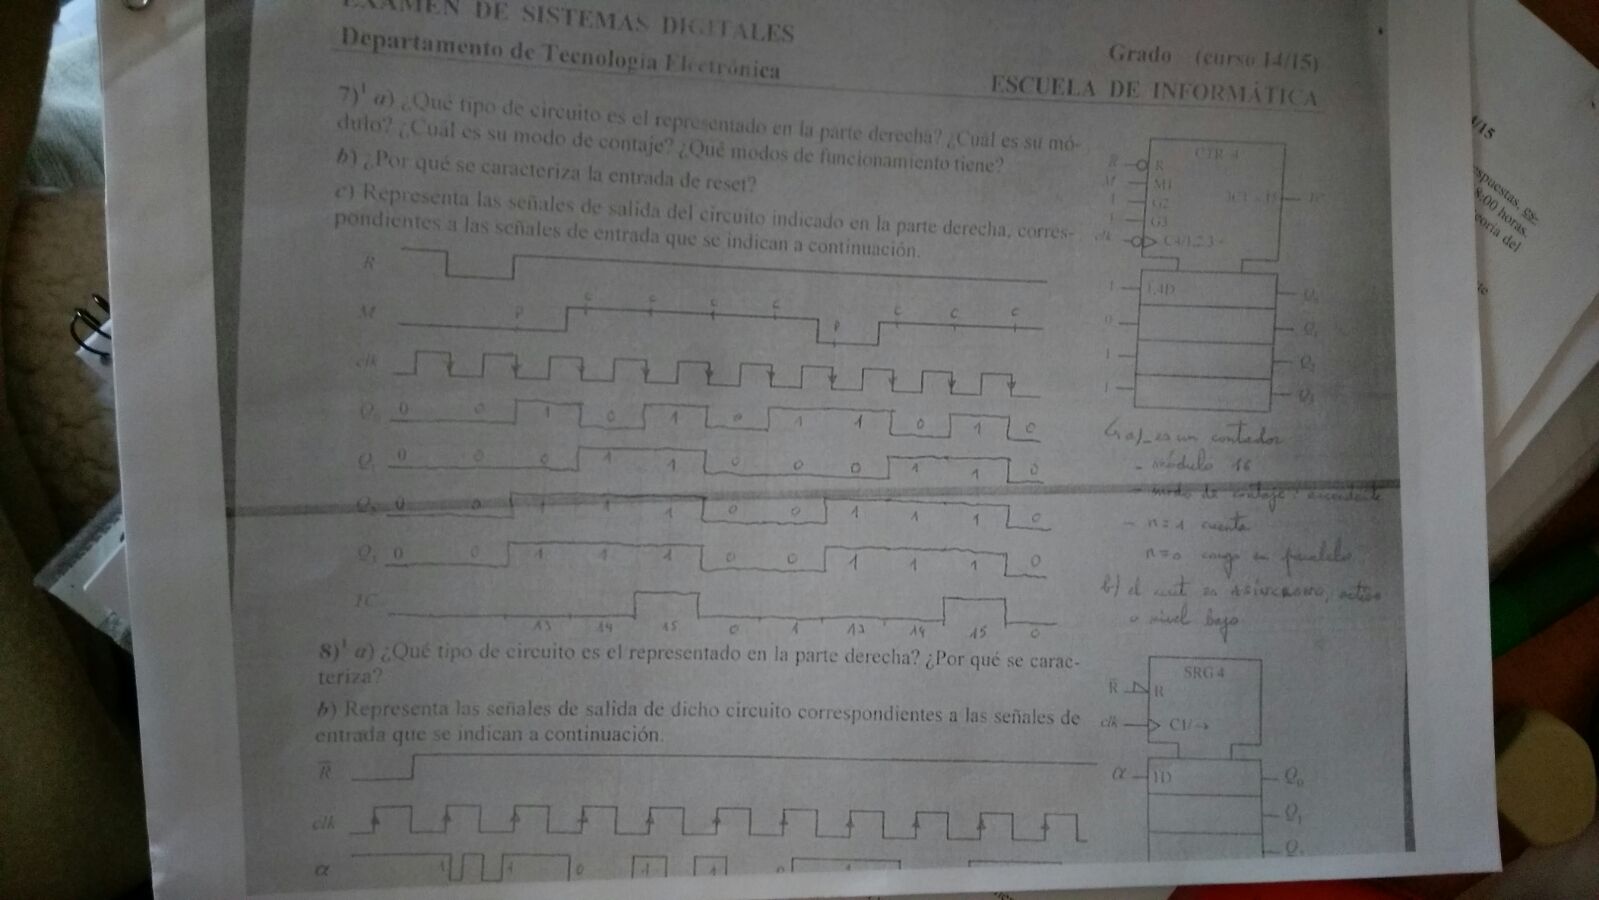 EXAMEN DE SISTEMAS DIGITALES
Departamento de Tecnología Electrónica
Grado (curso 14/15)
ESCUELA DE INFORMÁTICA
7)¹ a) ¿Qué tipo de circuito es el representado en la parte derecha? ¿Cuál es su mó-
dulo? ¿Cuál es su modo de contaje? ¿Qué modos de funcionamiento tiene?
b) ¿Por qué se caracteriza la entrada de reset?
c) Representa las señales de salida del circuito indicado en la parte derecha, corres-
pondientes a las señales de entrada que se indican a continuación.
CTR 4
R R
M M1
1 G2
1 G3
clk
1 1,4D
0
1
1
Q₁
Q₂
Q₃
R
M P C C C C P C C C
clk
Q₀ 0 0 1 0 1 0 1 1 0 1 0
Q₁ 0 0 0 1 1 0 0 0 1 1 0
Q₂ 0 0 1 1 1 0 0 1 1 1 0
Q₃ 0 0 1 1 1 0 0 1 1 1 0
TC
13 14 15 0 1 13 14 15 0
a) es un contador
- módulo 16
- modo de contaje: ascendente
- n=1 cuenta
n=0 carga en paralelo
b) el reset es asíncrono, activo
a nivel bajo
8)¹ a) ¿Qué tipo de circuito es el representado en la parte derecha? ¿Por qué se carac-
teriza?
b) Representa las señales de salida de dicho circuito correspondientes a las señales de
entrada que se indican a continuación.
SRG 4
R̅ R
clk C1/→
α 1D Q₀
Q₁
R̅
clk
α 1 1 0 1 1 0 1
4/15
spuestas, es-
8:00 horas.
oría del